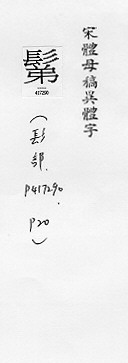 宋體母稿異體字
鬀
417290
(髟部. P417290. P20)